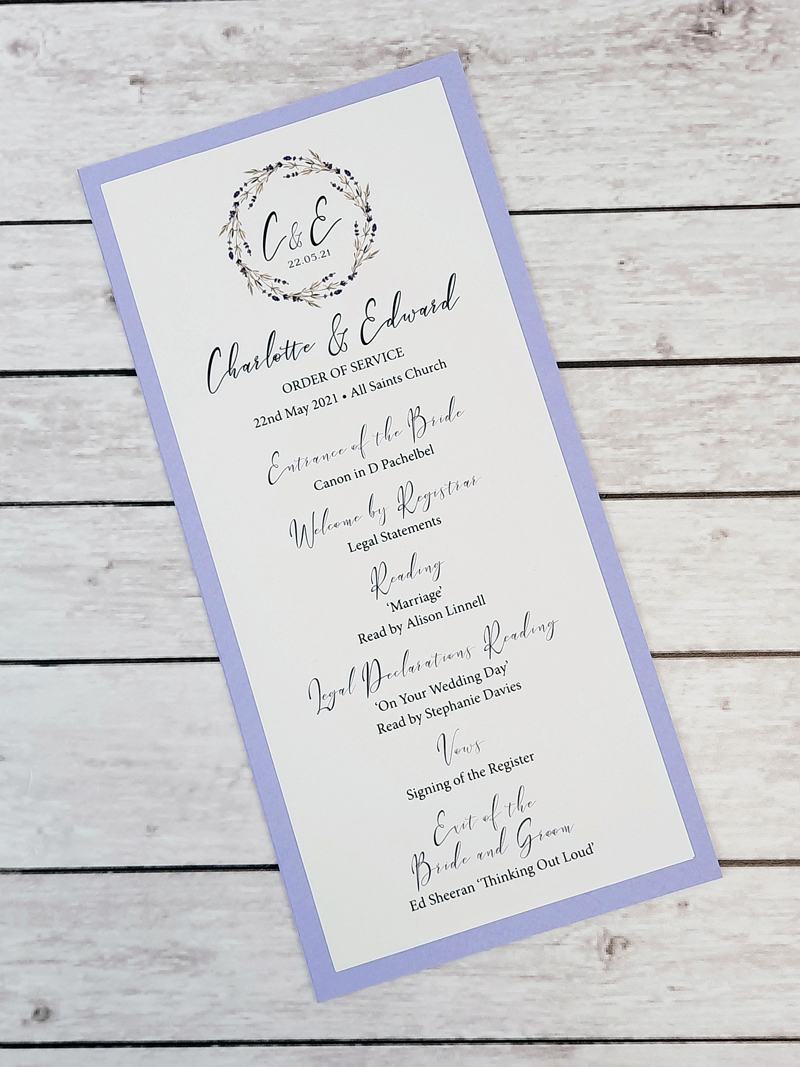 C & E
22.05.21
Charlotte & Edward
ORDER OF SERVICE
22nd May 2021 • All Saints Church
Entrance of the Bride
Canon in D Pachelbel
Welcome by Registrar
Legal Statements
Reading
‘Marriage’
Read by Alison Linnell
Legal Declarations Reading
‘On Your Wedding Day’
Read by Stephanie Davies
Vows
Signing of the Register
Exit of the
Bride and Groom
Ed Sheeran ‘Thinking Out Loud’